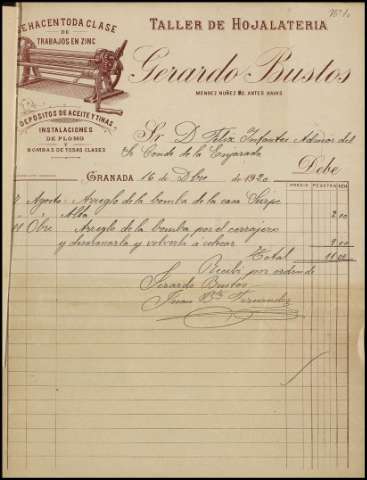 SE HACEN TODA CLASE
DE
TRABAJOS EN ZINC
DEPOSITOS DE ACEITE Y TINAS
INSTALACIONES
DE PLOMO
Y
BOMBAS DE TODAS CLASES
TALLER DE HOJALATERIA
Gerardo Bustos
MENDEZ NUÑEZ ANTES NAVAS
Sr. D. Felix Infantes Admor del
Sr Conde de la
Debe
GRANADA 16 de Dbre de 1920
PESETAS
Agosto Arreglo de la bomba de la casa
Alta 2.00
Obre Arreglo de la bomba por el cerrajero
y desmontarla y volverla á colocar 9.00
Total 11.00
Recibi por orden de
Gerardo Bustos
Juan Bta Fernandez